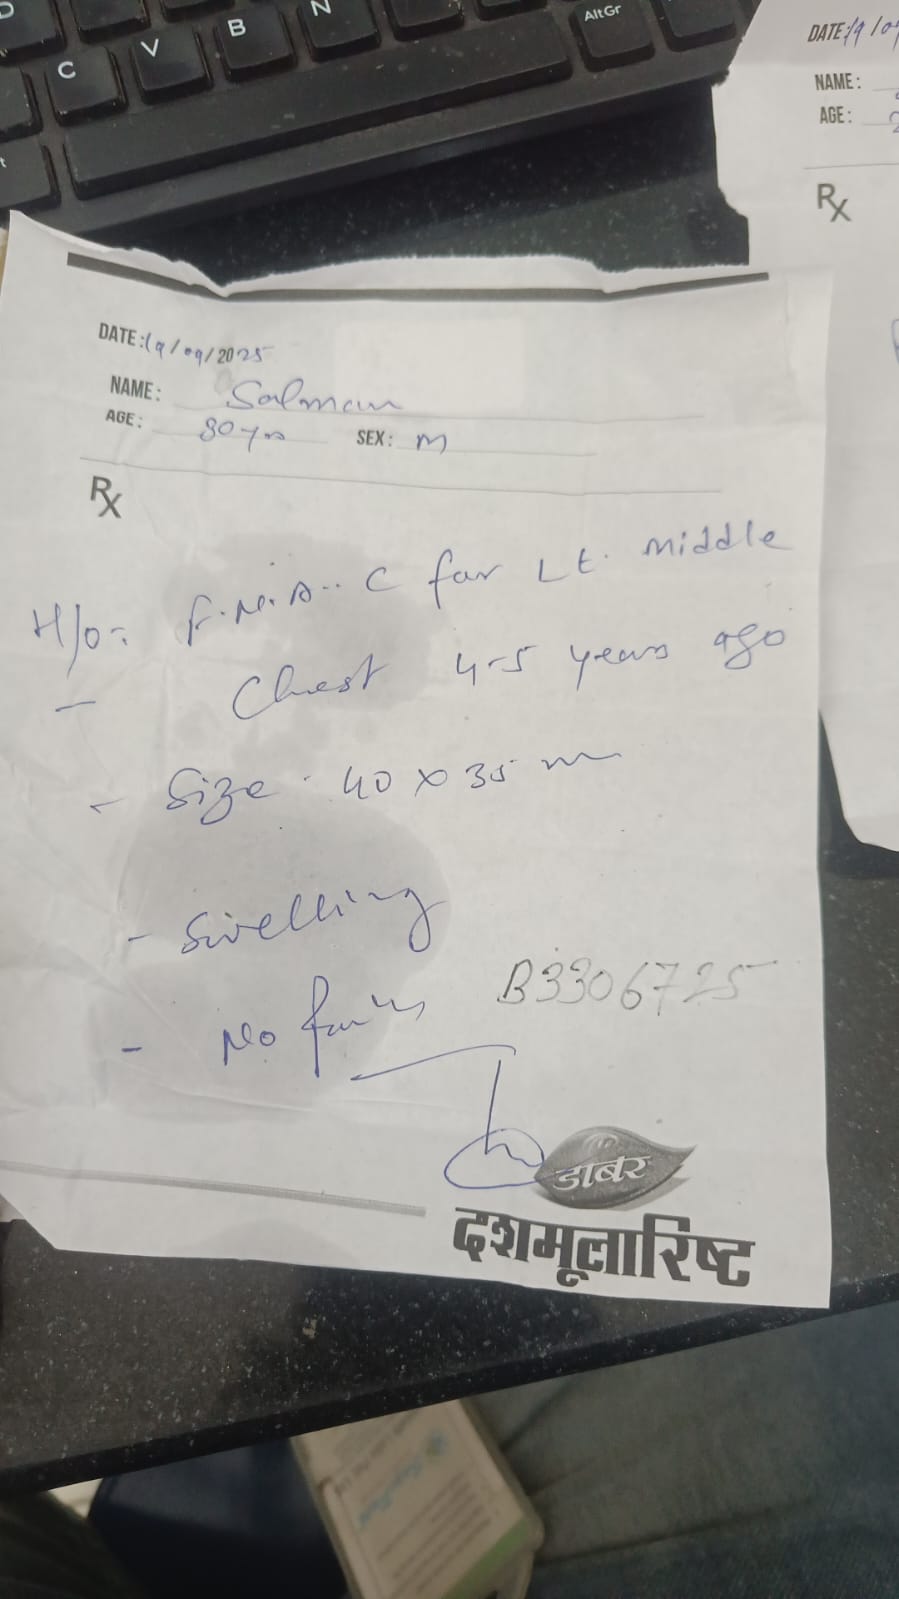 C V B N AltGr
DATE:
NAME:
AGE:
Rx
DATE: 19/09/2025
NAME: Salman
AGE: 30 yrs SEX: M
Rx
H/O:- F.N.A.C for Lt. middle
- Chest 4-5 years ago
- Size 40 x 35 m
- Swelling
- No B3306725
डाबर
दशमूलारिष्ट